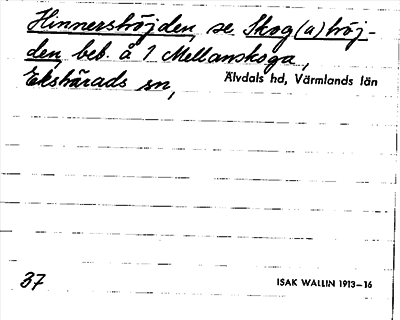 Hinnershöjden, se Skog(a)höj-
den, beb. å 1 Mellanskoga,
Ekshärads sn, Älvdals hd, Värmlands län
37 ISAK WALLIN 1913–16